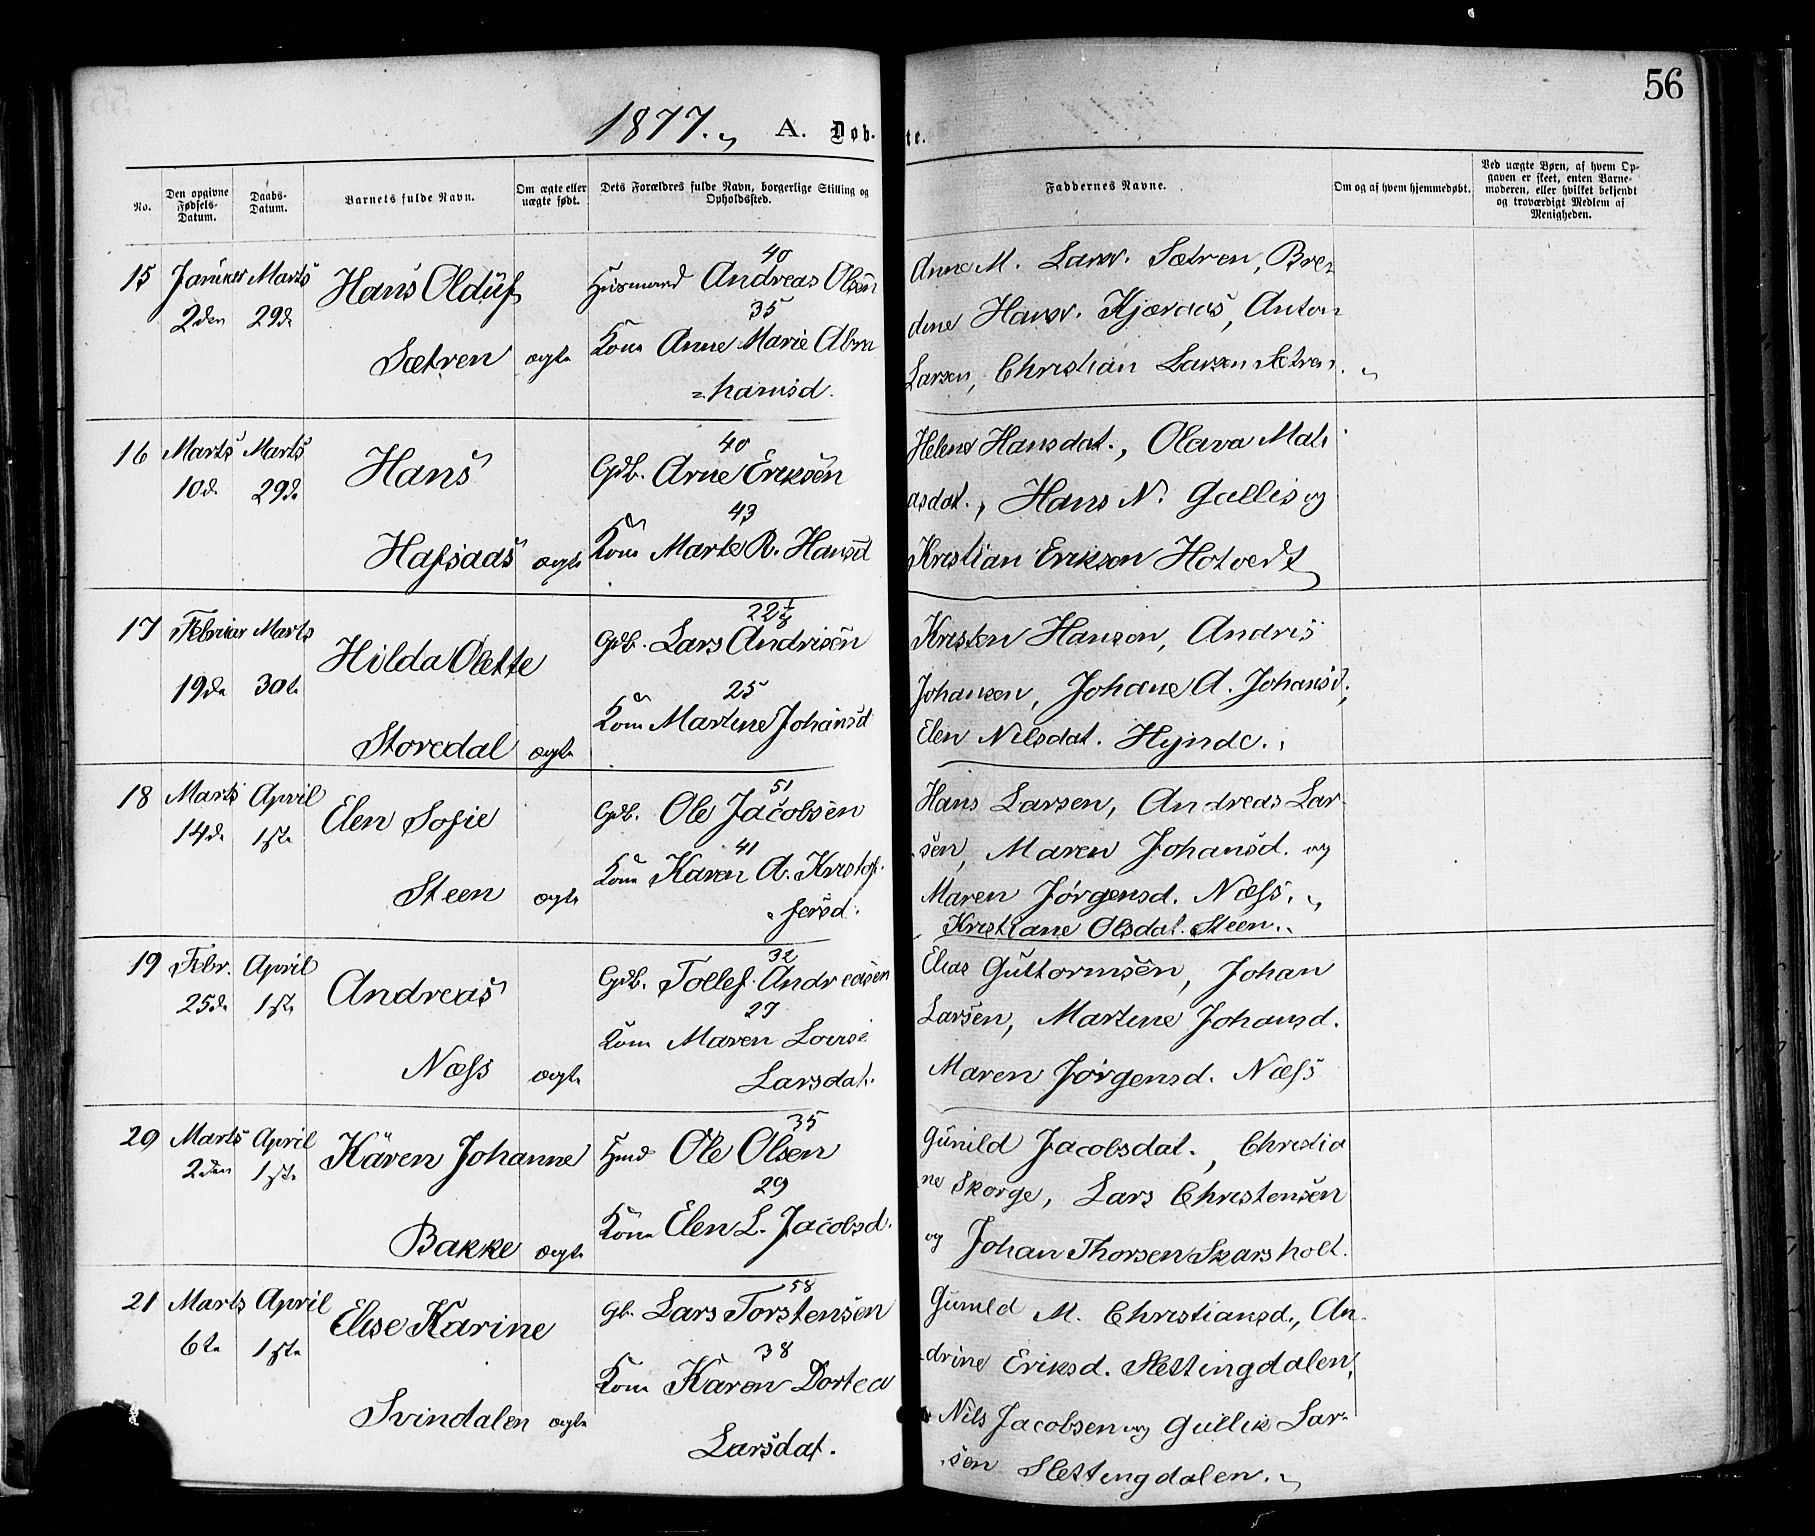 56
1877. A. Døb- te.
No.
Den opgivne Fødsels-Datum.
Daabs-Datum.
Barnets fulde Navn.
Om ægte eller uægte født.
Dets Forældres fulde Navn, borgerlige Stilling og Opholdssted.
Faddernes Navne.
Om og af hvem hjemmedøbt.
Ved uægte Børn, af hvem Opgaven er skeet, enten Barnemoderen, eller hvilket bekjendt og troværdigt Medlem af Menigheden.
15 Januar 2den Marts 29de
Hans Oluf
Sætren ægte
40
Husmand Andreas Olsen
35
Kone Anne Marie Abra
=hamsd.
Anne M. Larsd. Sætren, Bren
dine Hansd. Kjæraas, Anton
Larsen, Christian Larsen Sætren.
16 Marts 10d. Marts 29de
Hans
Hafsaas ægte
40
Gdb. Arne Eriksen
43
Kone Marte R. Hansd
Helene Hansdat., Olava Mati
asdat., Hans N. Gallis og
Kristian Erikson Hotvedt
17 Februar 19de Marts 30te
Hilda Olette
Storedal ægte
22
Gdb. Lars Andrisen
25
Kone Martine Johansd
Kristen Hanson, Andris
Johansen, Johane A. Johansd,
Elen Nilsdat. Hynde.
18 Marts 14de April 1ste
Elen Sofie
Steen ægte
51
Gdb. Ole Jacobsen
41
Kone Karen A. Kristof-
fersd.
Hans Larsen, Andreas Lar-
sen, Maren Johansd. og
Maren Jørgensd. Næss.
Kristiane Olsdat. Steen.
19 Febr. 25de April 1ste
Andreas
Næss ægte
32
Gdb. Tollef Andreasen
27
Kone Maren Lovise
Larsdat.
Elias Guttormsen, Johan
Larsen, Martine Johansd.
Maren Jørgensd. Næss
20 Marts 2den April 1ste
Karen Johanne
Bakke ægte
35
Hmd Ole Olsen
29
Kone Elen L. Jacobsd.
Gunild Jacobsdat., Christia
ne Skorge, Lars Christensen
og Johan Thorsen Skarsholt.
21 Marts 6te April 1ste
Elise Karine
Svindalen ægte
58
Gb. Lars Torstensen
38
Kone Karen Dortea
Larsdat.
Gunild M. Christiansd., An-
drine Eriksd. Slettingdalen,
Nils Jacobsen og Gullik Lar-
sen Slettingdalen.